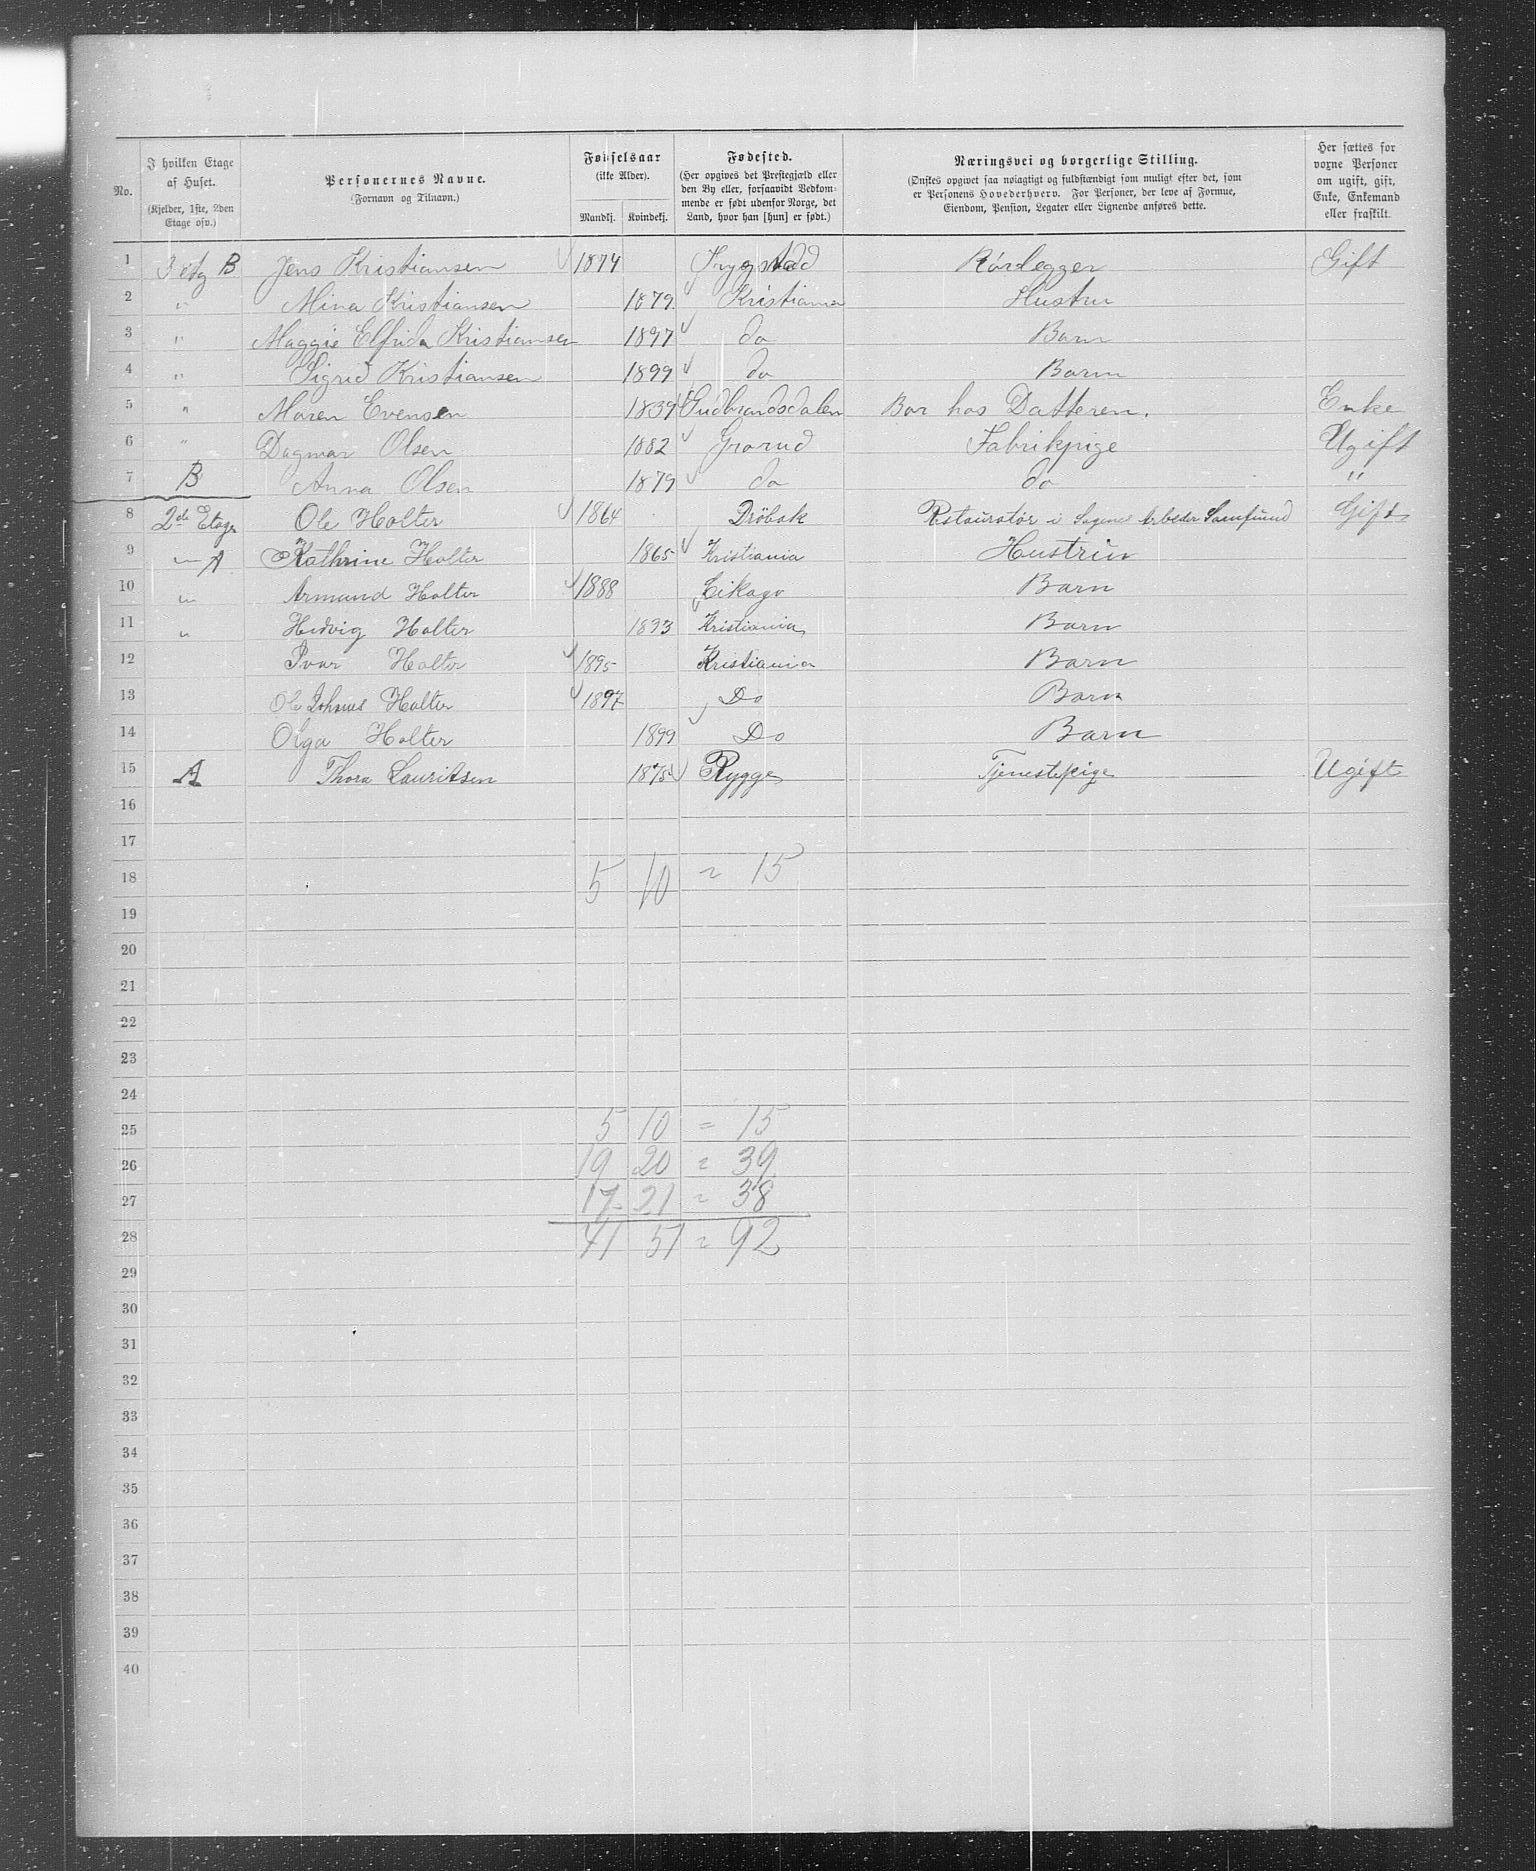 No.
I hvilken Etage af Huset.
(Kjelder, 1ste, 2den Etage osv.)
Personernes Navne.
(Fornavn og Tilnavn.)
Fødselsaar
(ikke Alder).
Mandkj. Kvindekj.
Fødested.
(Her opgives det Prestegjæld eller
den By eller, forsaavidt Vedkom-
mende er født udenfor Norge, det
Land, hvor han [hun] er født.)
Næringsvei og borgerlige Stilling.
(Ønskes opgivet saa nøiagtigt og fuldstændigt som muligt efter det, som
er Personens Hovederhverv. For Personer, der leve af Formue,
Eiendom, Pension, Legater eller Lignende anføres dette.
Her sættes for
voxne Personer
om ugift, gift,
Enke, Enkemand
eller fraskilt.
1 3 etg B Jens Kristiansen 1874 Trygstad Rørlegger Gift
2 " Mina Kristiansen 1879. Kristiania Hustru
3 " Maggie Elfrida Kristiansen 1897 do Barn
4 " Sigrid Kristiansen 1899 do Barn
5 " Maren Evensen 1839 Gudbrandsdalen Bor hos Datteren. Enke
6 " Dagmar Olsen 1882 Grorud Fabrikpige Ugift
7 B Anna Olsen 1879 do do "
8 2de Etage Ole Holter 1864 Drøbak Restauratør i Sagene Arbeder Samfund Gift
9 " A Kathrine Holter 1865 Kristiania Hustru
10 " Armund Holter 1888 Cikago Barn
11 " Hedvig Holter 1893 Kristiania Barn
12 Ivar Holter 1895 Kristiania Barn
13 Ole Johanes Holter 1897 Do Barn
14 Olga Holter 1899 Do Barn
15 A Thora Lauritsen 1875 Rygge Tjenestepige Ugift
16
17
18 5 10 = 15
19
20
21
22
23
24
25 5 10 = 15
26 19 20 = 39
27 17 21 = 38
28 41 51 = 92
29
30
31
32
33
34
35
36
37
38
39
40